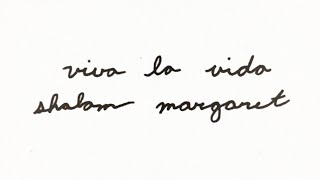 viva la vida
shalam margaret